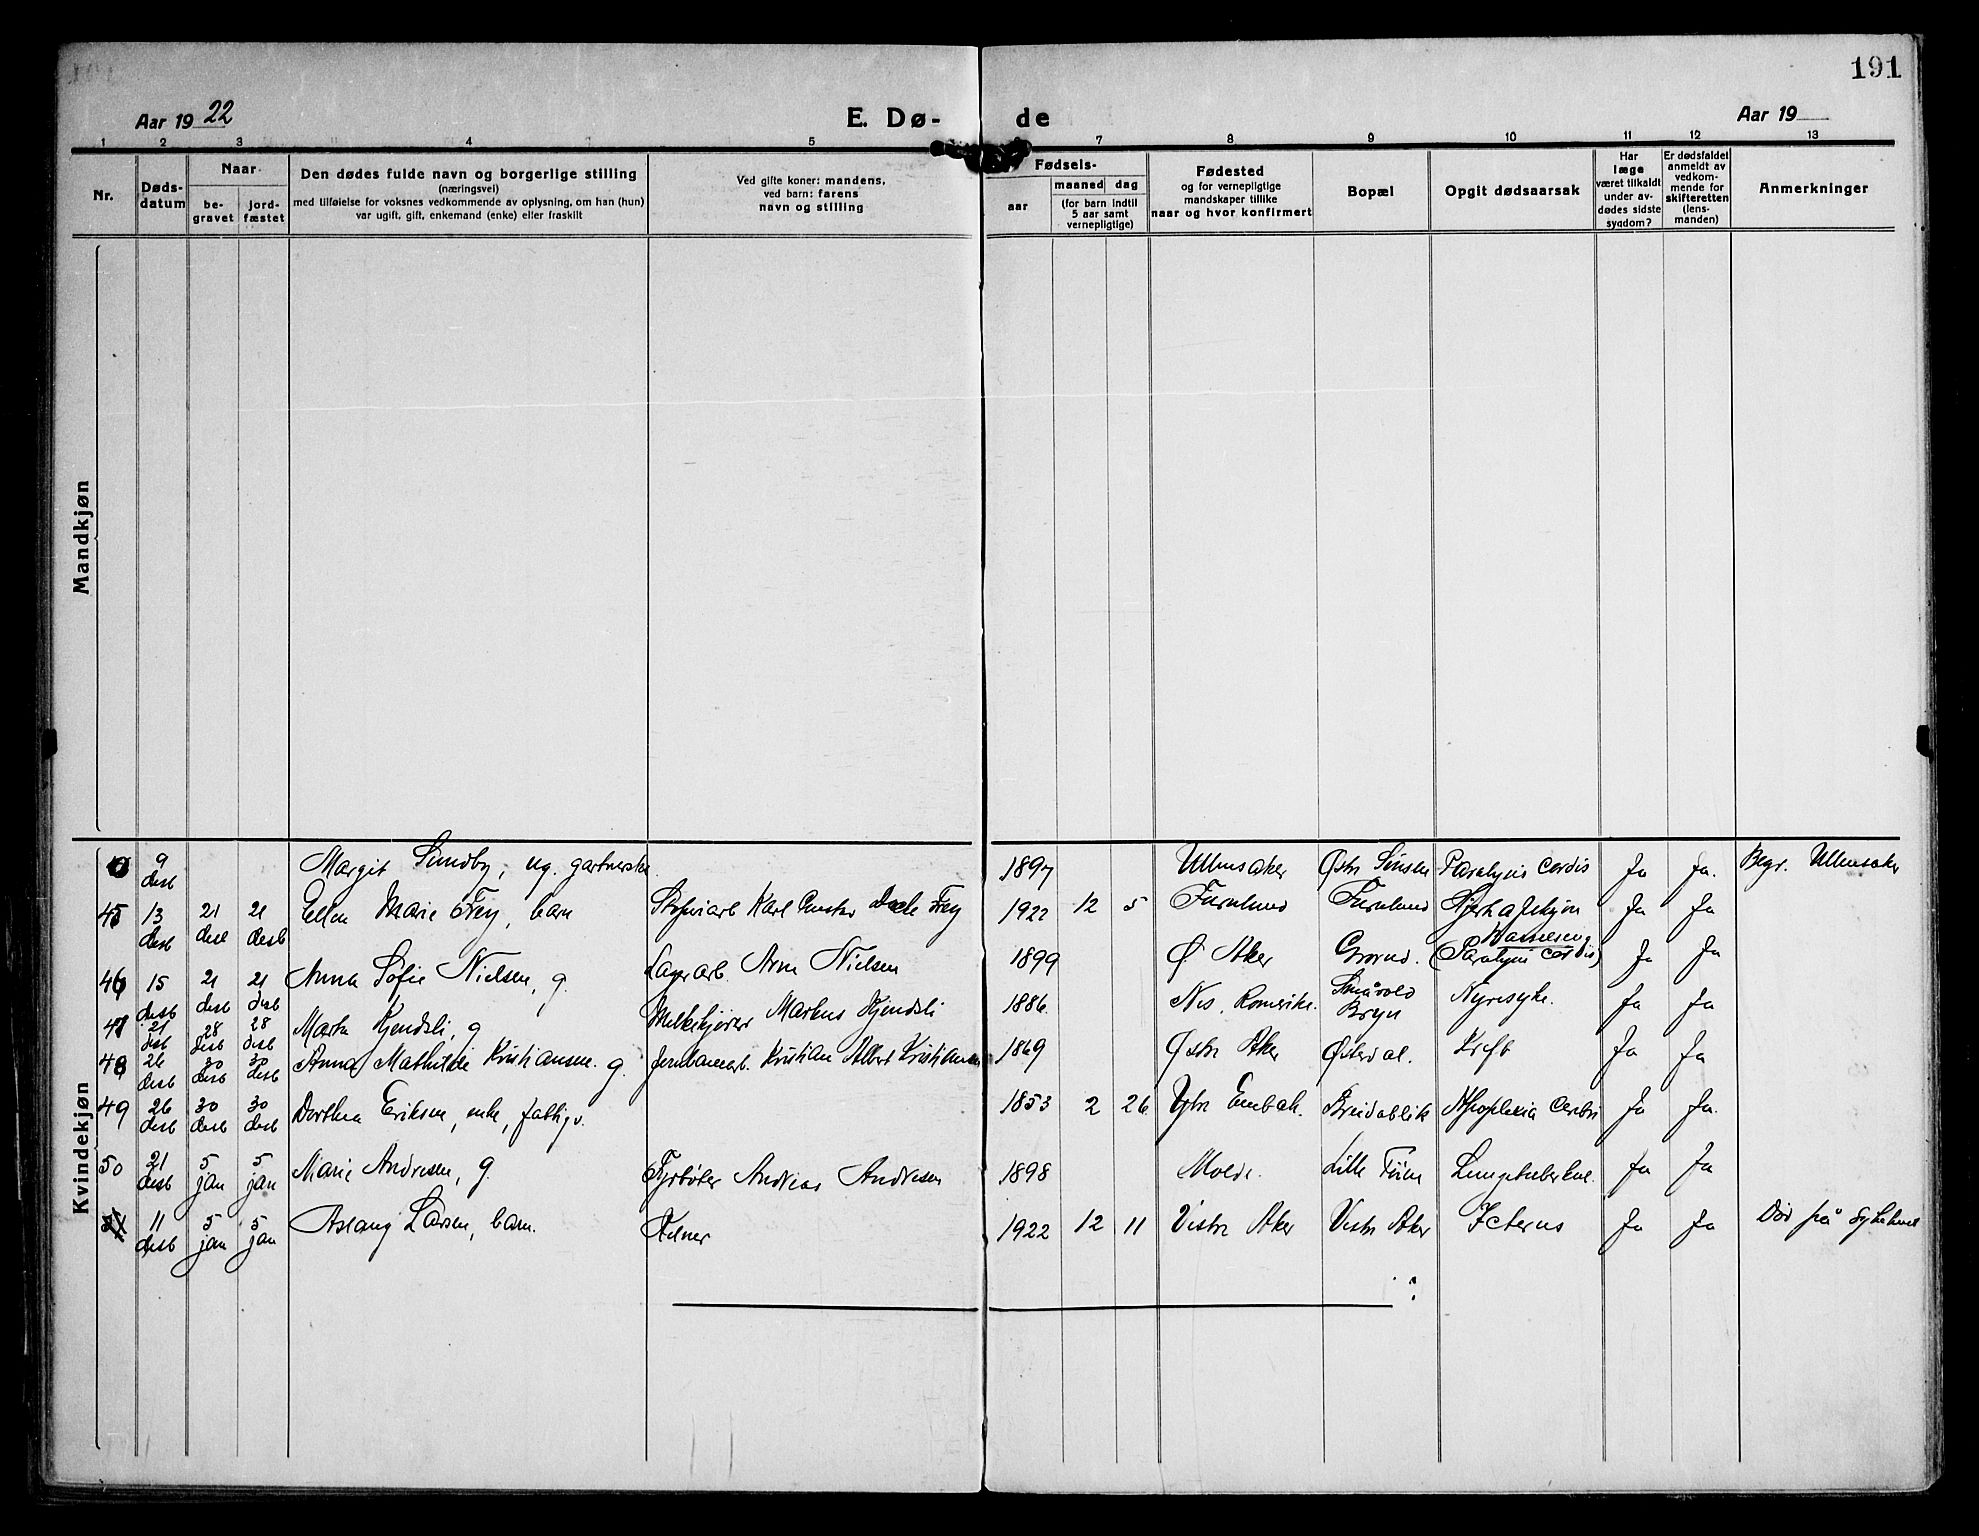 191
Aar 19 22
E. Dø-
de
Aar 19
1 2 3 4 5 7 8 9 10 11 12 13
Nr.
Døds-
datum
Naar
be-
gravet
jord-
fæstet
Den dødes fulde navn og borgerlige stilling
(næringsvei)
med tilføielse for voksnes vedkommende av oplysning, om han (hun)
var ugift, gift, enkemand (enke) eller fraskilt
Ved gifte koner: mandens,
ved barn: farens
navn og stilling
Fødsels-
aar
maaned dag
(for barn indtil
5 aar samt
vernepligtige)
Fødested
og for vernepligtige
mandskaper tillike
naar og hvor konfirmert
Bopæl
Opgit dødsaarsak
Har
læge
været tilkaldt
under av-
dødes sidste
sygdom?
Er dødsfaldet
anmeldt av
vedkom-
mende for
skifteretten
(lens-
manden)
Anmerkninger
Mandkjøn
Kvindekjøn
0 9 desb Margit Sundby, ug. 1897 Ullensaker Østr Paralysis cordis Ja Ja. Begr. Ullensaker
45 13 desb 21 desb 21 desb Ellen Marie Frey, barn Karl Frey 1922 12 5 Furulund Furulund Ja Ja
46 15 desb 21 desb 21 desb Anna Sofie Nielsen, g. Lagerarb. Arne Nielsen 1899 Ø. Aker Grorud. (Paralysis cordis) Ja Ja
47 21 desb 28 desb 28 desb Marta Kjendsli, g. Melkekjører Markus Kjendsli 1886 Nes, Romerike. Bryn Nyresyke. Ja Ja
48 26 desb 30 desb 30 desb Anna Mathilde Kristiansen. g. Jernbanearb. Kristian Albert Kristiansen 1869 Østre Aker Østerdal. Kreft Ja Ja
49 26 desb 30 desb 30 desb Dorthea Eriksen, enke, fattigu. 1853 2 26 Ytre Enebak. Breidablik Apoplexia Cerebri Ja Ja.
50 21 desb 5 jan 5 jan Marie Andresen, g. Fyrbøter Andreas Andresen 1898 Molde. Lille Tøien Lungetuberkul. Ja Ja
51 11 desb 5 jan 5 jan Aslaug Larsen, barn. 1922 12 11 Vestre Aker Vestre Aker Icterus Ja Ja Død på Sykehuset